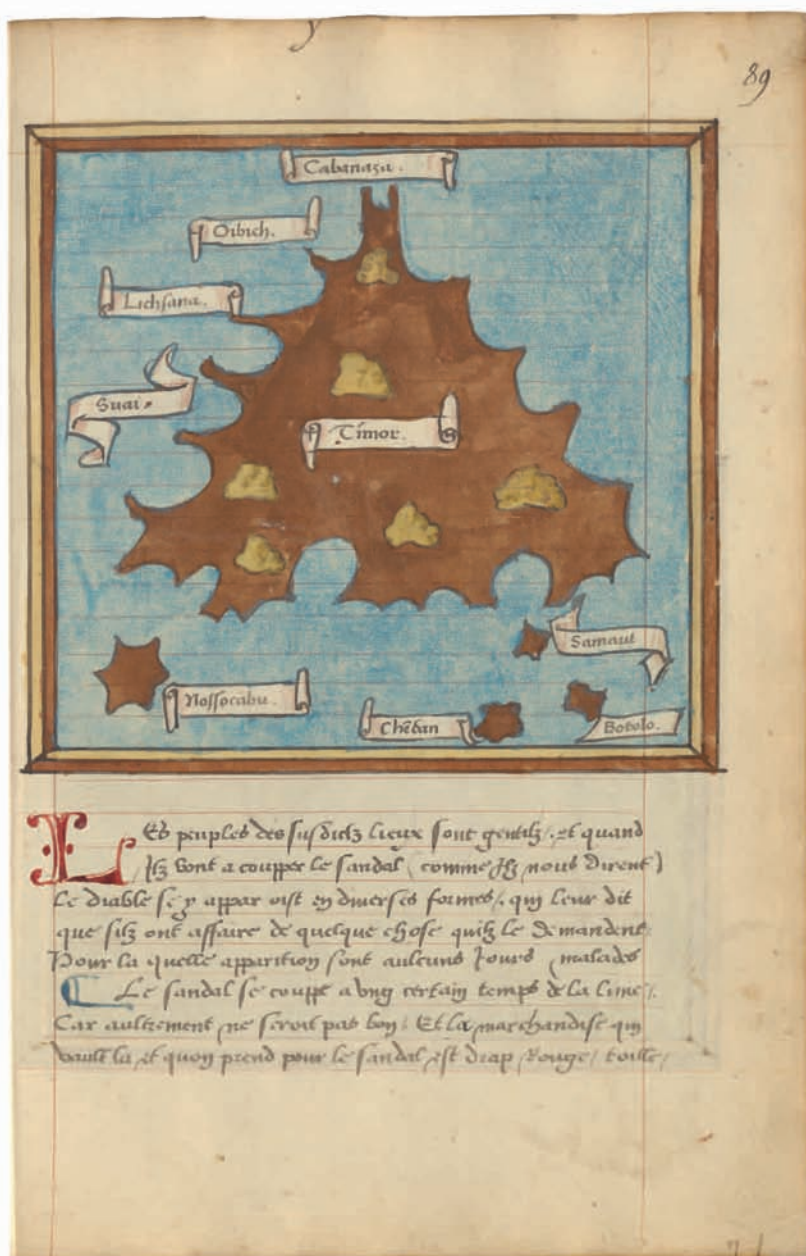 89
Cabanaza.
Oibich.
Lichsana.
Suai.
Timor.
Samaut
Nossocabu.
Chēban
Botolo.
LEs peuples des susdictz lieux sont gentilz/. et quand
Ilz vont a coupper le sandal (comme Ilz nous dirent)
Le diable se y appar oist en diverses formes/. qui leur dit
que silz ont affaire de quelque chose quilz le demandent.
Pour la quelle apparition sont aulcuns Jours malades
Le sandal se couppe a vng certain temps de la lune/.
Car aultrement ne seroit pas bon: Et la marchandise qui
vault la et quon prend pour le sandal est drap Rouge/ toille/